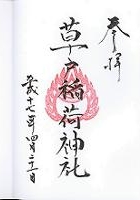 奉拝
草戸稲荷神社
平成十七年四月二十二日